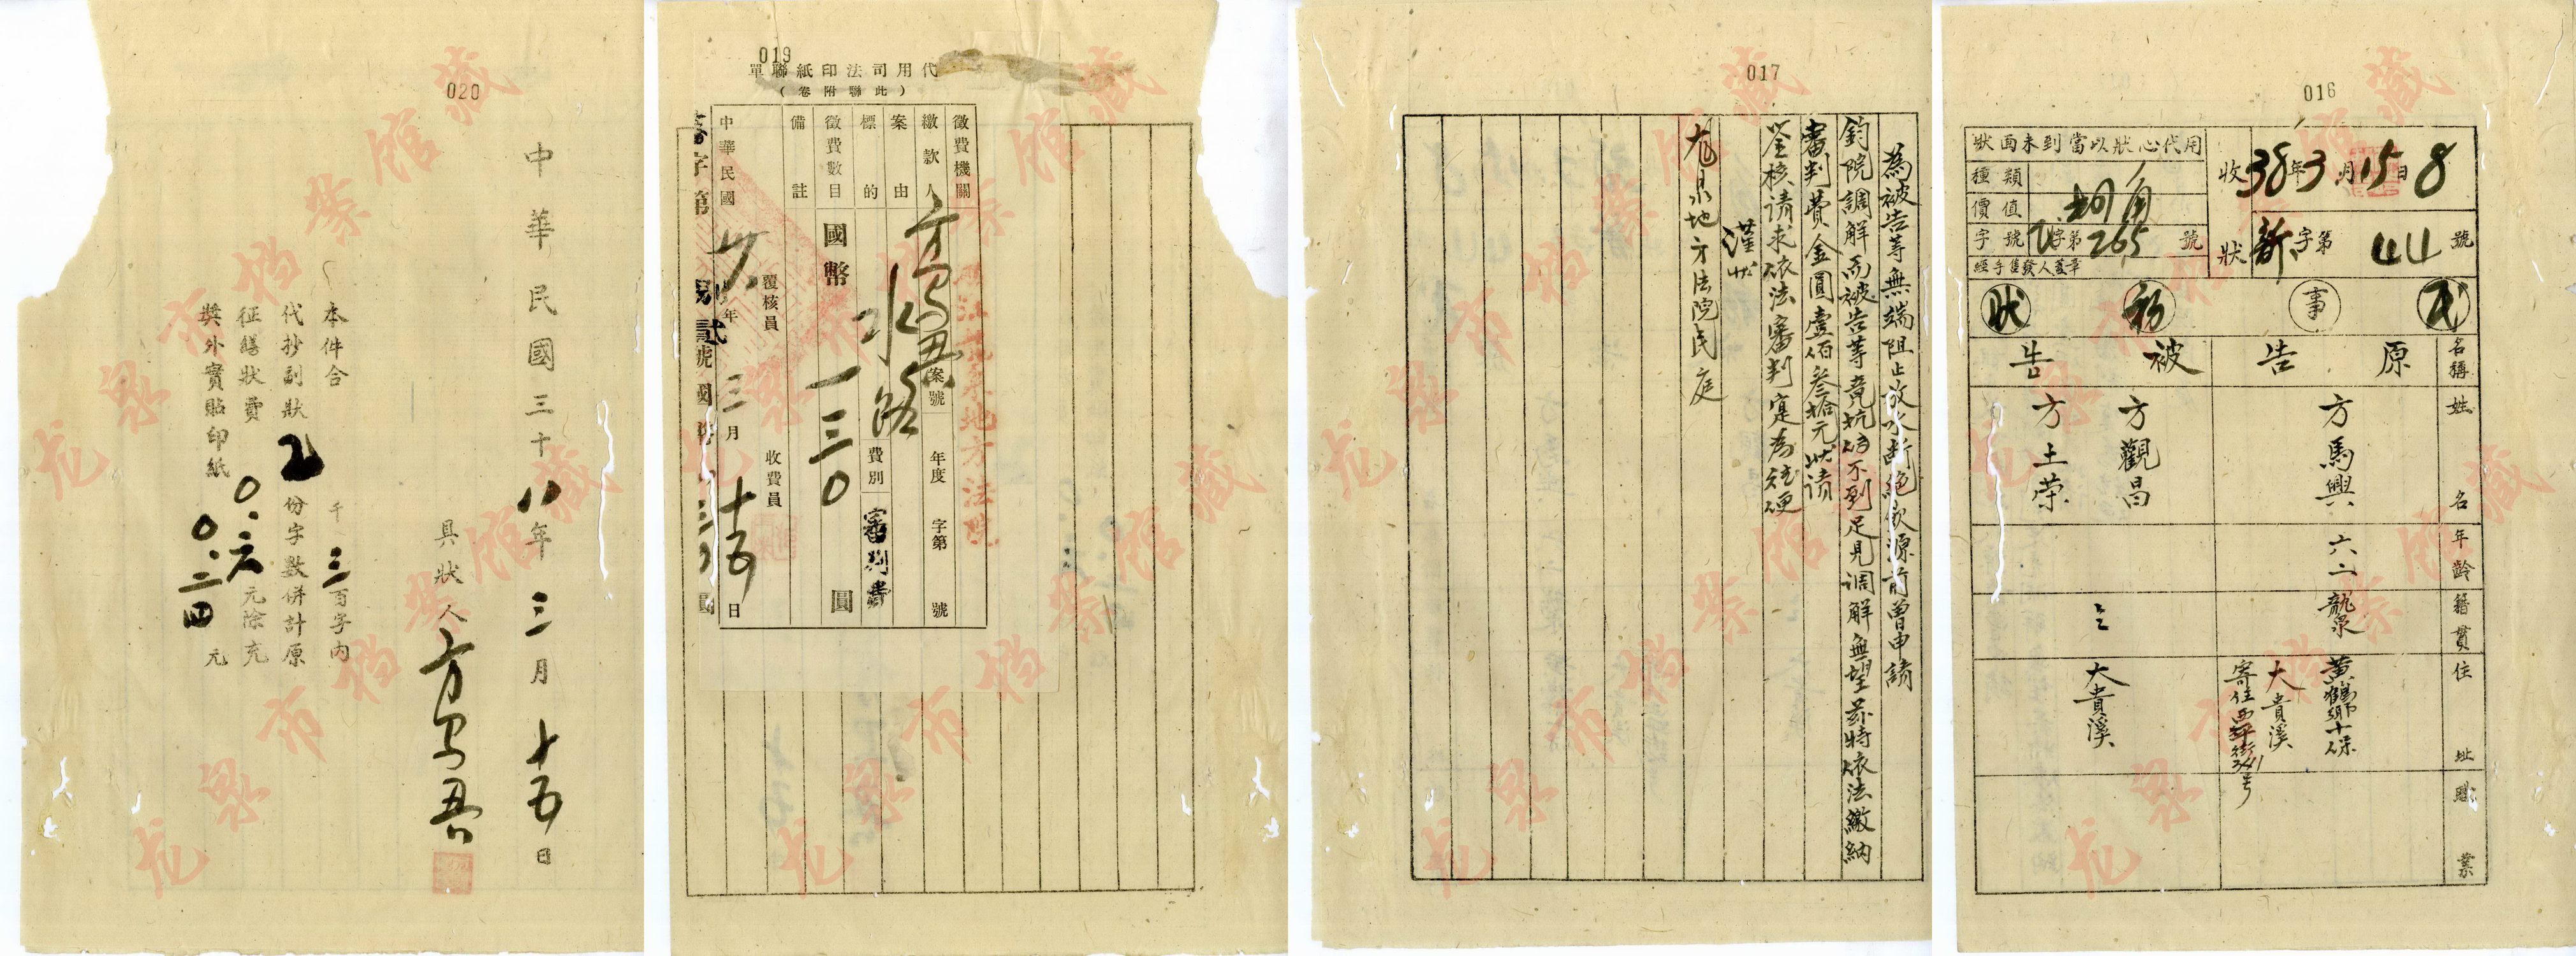 016
狀面未到當以狀心代用
種類
價值 捌角
字號 字第265號
經手售發人蓋章
收 38年3月15日8
狀 新字第44號
民事 狀
名稱 原告 被告
姓名 方馬興 方觀昌 方土荣
年齡 六二
籍貫 龍泉
住址
黃鶴鄉十保
大貴溪
寄住西平街341号
大貴溪
職業
017
為被告等無端阻止放水斷絕飲源前曾申請
鈞院調解而被告等竟抗傳不到足見調解無望茲特依法繳納
審判費金圓壹佰叁拾元狀請
鉴核请求依法審判寔為德便
謹狀
龙泉地方法院民庭
019
代用司法印紙聯單
(此聯附卷)
徵費機關 龍泉地方法院
繳款人 方馬兴
案由 水路
案號 年度 字第 號
標的
費別 審判費
徵費數目 國幣 一三0 圓
備註
覆核員 收費員
中華民國卅八年三月十五日
020
中華民國三十八年三月十五日
具狀人
本件合 千三百字內
代抄副狀2份字數併計原
征繕狀費0.六元除充
獎外實貼印紙0.二四元
龙泉市档案馆藏